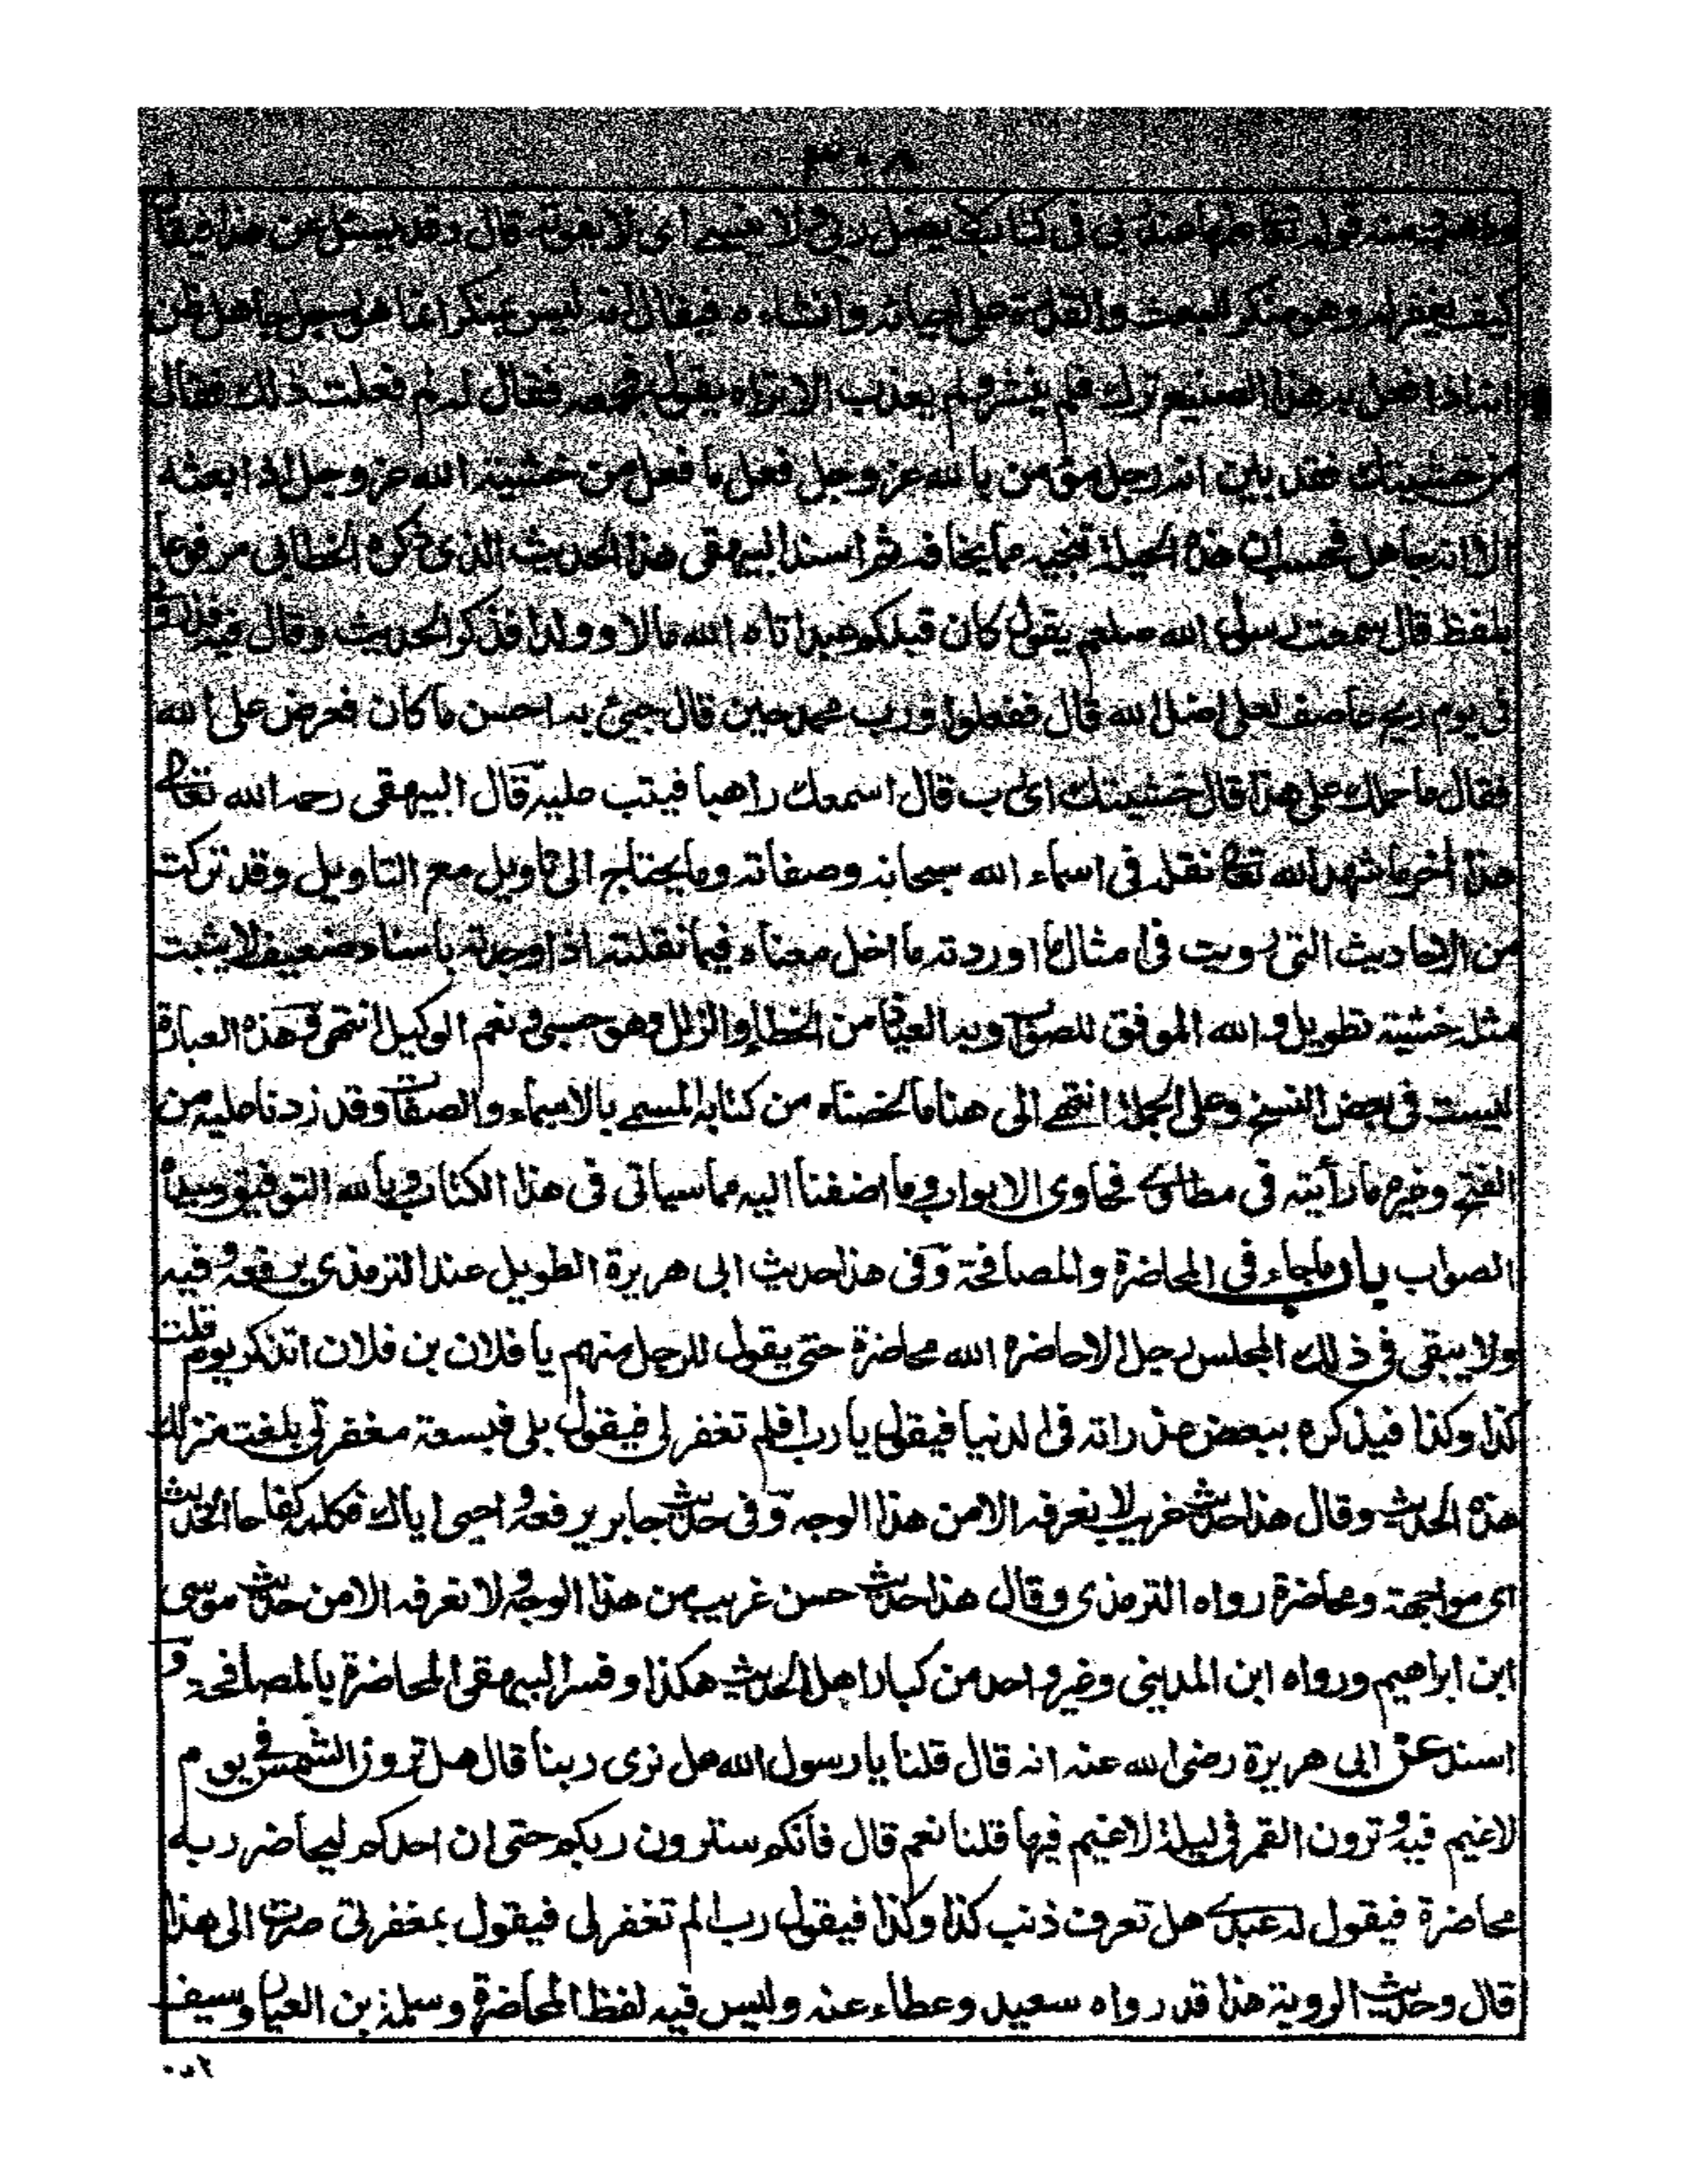 ٣٠٨
منه قوله تعالى علمها عند ربي فى كتاب لا يضل ربى ولا ينسى اى لا يفوته قال وقد يسئل عن هذا فيقال
كيف يغفر له وهو منكر للبعث والقدرة على احيائه وانشاءه فيقال انه ليس بمنكر انما هو رجل جاهل ظن
انه اذا فعل به هذا الصنيع ترك فلم ينشر ولم يعذب الا تراه يقول فجمعه فقال له لم فعلت ذلك فقال
من خشيتك فقد بين انه رجل مؤمن بالله عز وجل فعل ما فعل من خشية الله عز وجل اذا بعثه
الا انه جاهل فحسب ان هذه الحيلة تنجيه مما يخافه ثم اسند البيهقى هذا الحديث الذى ذكره الخطابى مرفوعا
بلفظ قال سمعت رسول الله صلعم يقول كان قبلكم عبد اتاه الله مالا وولدا فذكر الحديث وقال فيه
فى يوم ريح عاصف لعلى اضل الله قال ففعلوا ورب محمد حين قال جيئ به احسن ما كان فعرض على الله
فقال ما حملك على هذا قال خشيتك اى رب قال اسمعك راهبا فيتب عليه قال البيهقى رحمه الله تعالى
هذا اخر ما سهل الله تعالى نقله فى اسماء الله سبحانه وصفاته وما يحتاج الى تاويل مع التاويل وقد تركت
من الاحاديث التى رويت فى امثال ما اوردته ما دخل معناه فيما نقلته اذا وجدته باسناد ضعيف لا يثبت
مثله خشية تطويل والله الموفق للصواب وبه العياذ من الخطاء والزلل وهو حسبى ونعم الوكيل انتهى وهذه العبارة
ليست فى بعض النسخ وعلى الجملة انتهى الى هنا ما لخصناه من كتابه المسمى بالاسماء والصفات وقد زدنا عليه من
الفتح وغيره ما رأيته فى مطاوى فحاوى الابواب وما اضفنا اليه مما سياتى فى هذا الكتاب وبالله التوفيق وبيده
الصواب باب ما جاء فى المحاضرة والمصافحة وفى هذا حديث ابى هريرة الطويل عند الترمذى يرفعه وفيه
ولا يبقى فى ذلك المجلس رجل الا حاضره الله محاضرة حتى يقول للرجل منهم يا فلان بن فلان اتذكر يوم قلت
كذا وكذا فيذكره ببعض غدراته فى الدنيا فيقول يا رب افلم تغفر لى فيقول بلى فبسعة مغفرتى بلغت منزلتك
هذه الحديث وقال هذا حديث غريب لا نعرفه الا من هذا الوجه وفى حديث جابر يرفعه واحيى اباك فكلمه كفاحا الحديث
اى مواجهة ومحاضرة رواه الترمذى وقال هذا حديث حسن غريب من هذا الوجه ولا نعرفه الا من حديث موسى
ابن ابراهيم ورواه ابن المدينى وغير واحد من كبار اهل الحديث هكذا وفسر البيهقى المحاضرة بالمصافحة و
اسند عن ابى هريرة رضى الله عنه انه قال قلنا يا رسول الله هل نرى ربنا قال هل ترون الشمس فى يوم
لا غيم فيه وترون القمر فى ليلة لا غيم فيها قلنا نعم قال فانكم سترون ربكم حتى ان احدكم ليحاضر ربه
محاضرة فيقول له عبدى هل تعرف ذنب كذا وكذا فيقول رب الم تغفر لى فيقول بمغفرتى صرت الى هذا
قال وحديث الروية هذا قد رواه سعيد وعطاء عنه وليس فيه لفظ المحاضرة وسلمة بن العيار وسيف